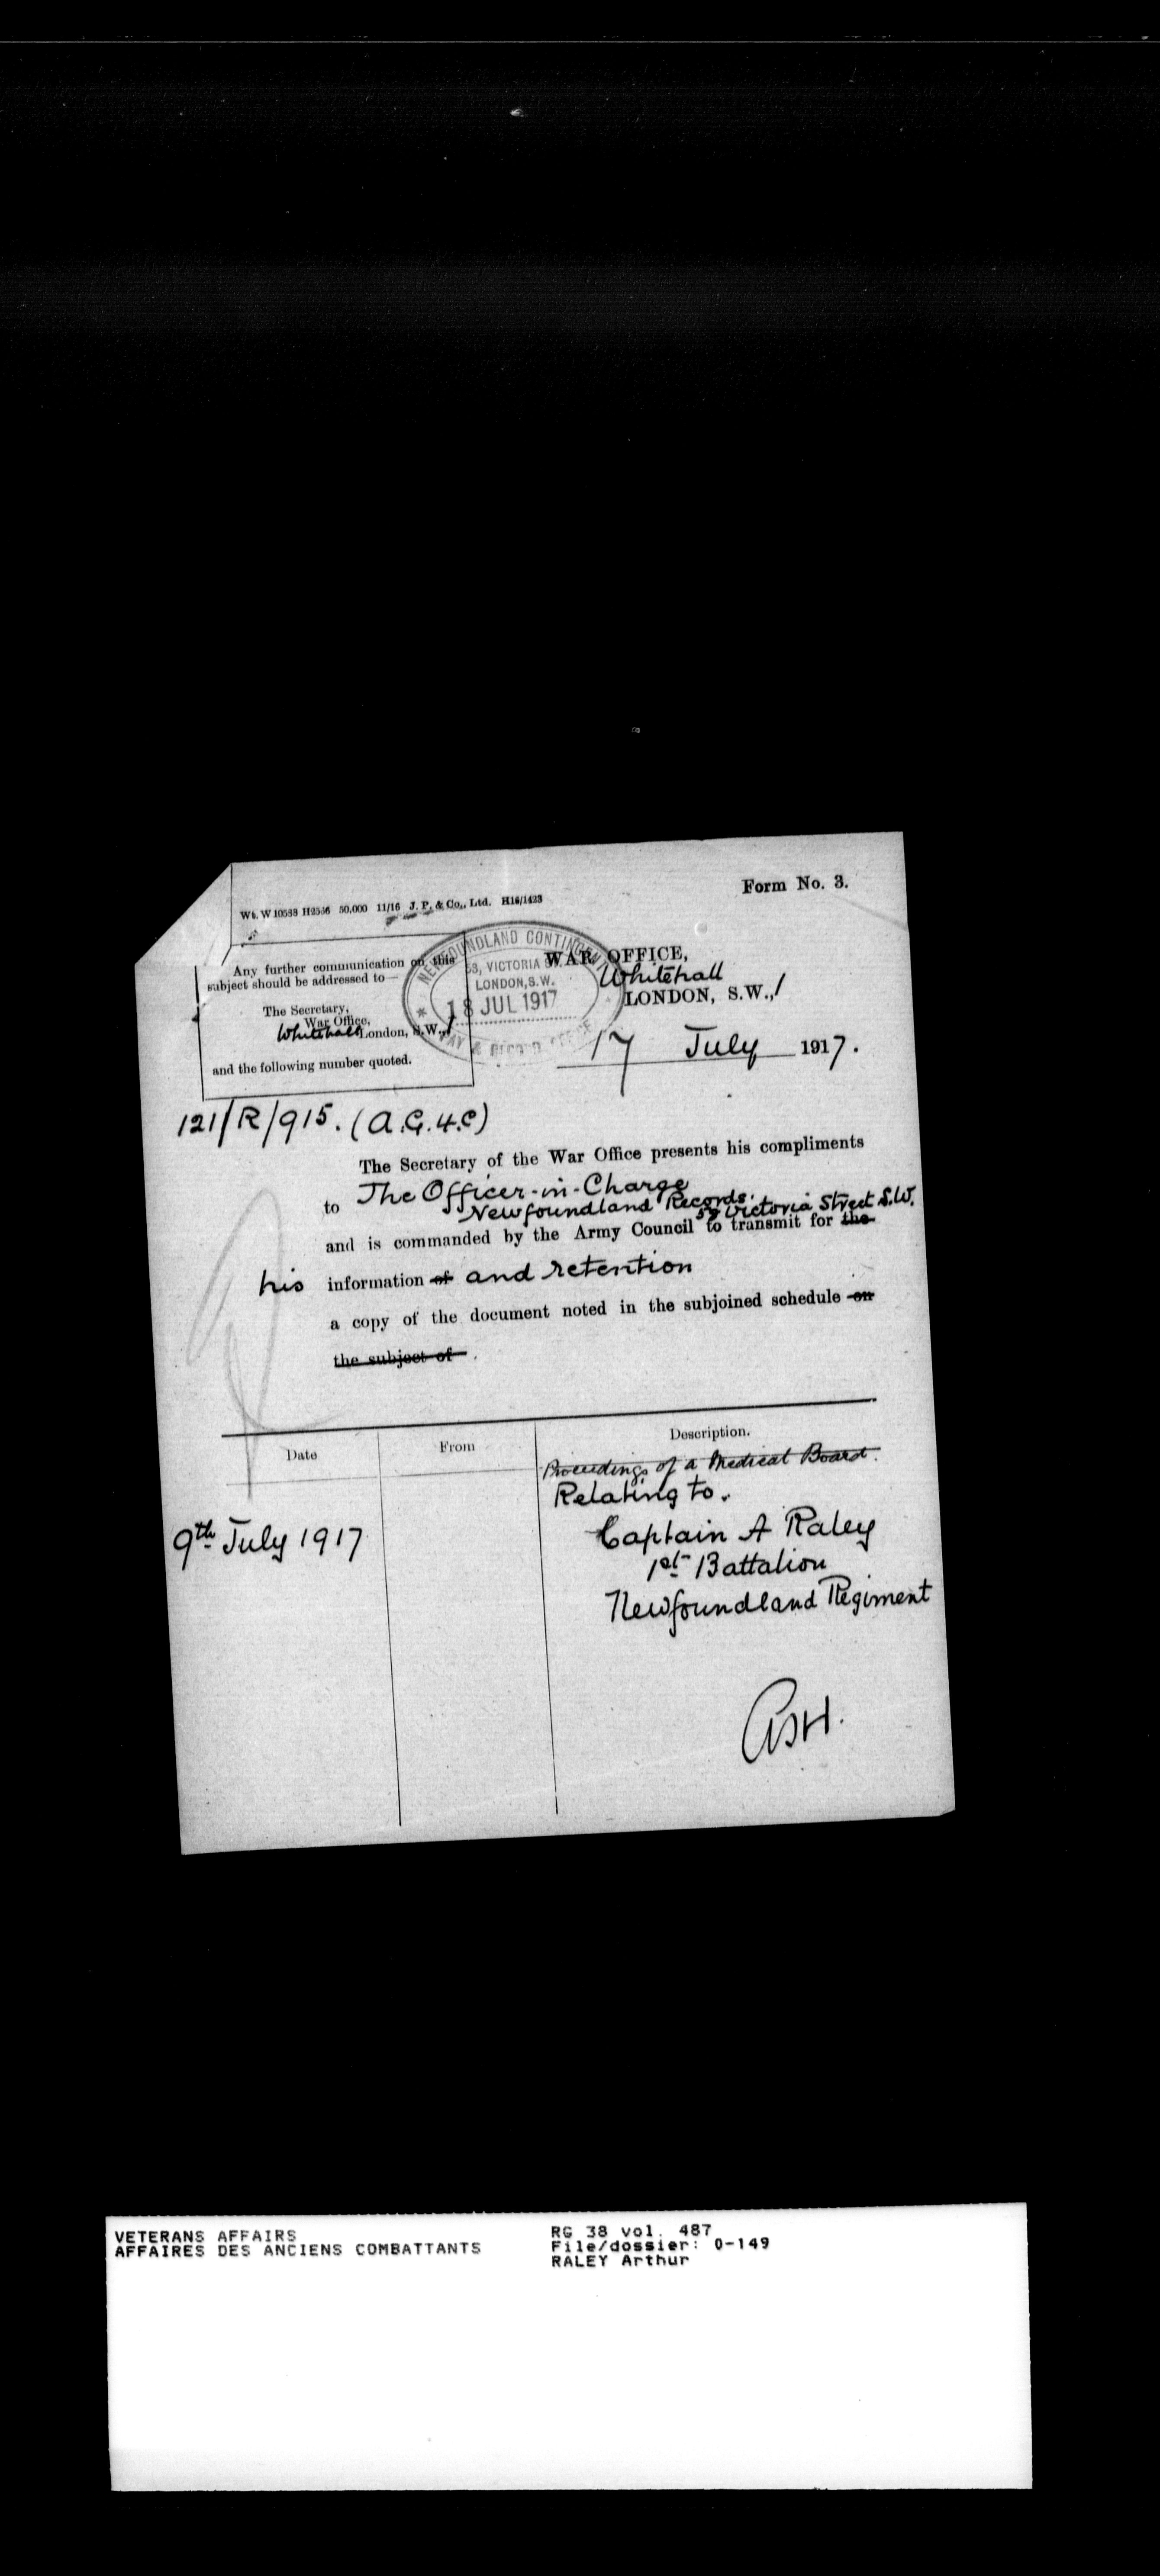 Form No. 3.
Wt. W 10538 H2556 50,000 11/16 J. P. & Co., Ltd. H16/1423
Any further communication on this
subject should be addressed to—
The Secretary,
War Office,
Whitehall London, S.W.,1
and the following number quoted.
NEWFOUNDLAND CONTINGENT
53, VICTORIA
LONDON, S.W.
18 JUL 1917
PAY & RECORD OFFICE
WAR OFFICE,
Whitehall
LONDON, S.W.,1
17 July 1917.
121/R/915. (A.G.4.C)
The Secretary of the War Office presents his compliments
to The Officer-in-Charge
Newfoundland Records.
58 Victoria Street S.W.
and is commanded by the Army Council to transmit for the
his information of and retention
a copy of the document noted in the subjoined schedule on
the subject of .
Date From Description.
Proceedings of a Medical Board.
Relating to.
9th July 1917 Captain A Raley
1st Battalion
Newfoundland Regiment
VETERANS AFFAIRS
AFFAIRES DES ANCIENS COMBATTANTS
RG 38 vol. 487
File/dossier: 0-149
RALEY Arthur